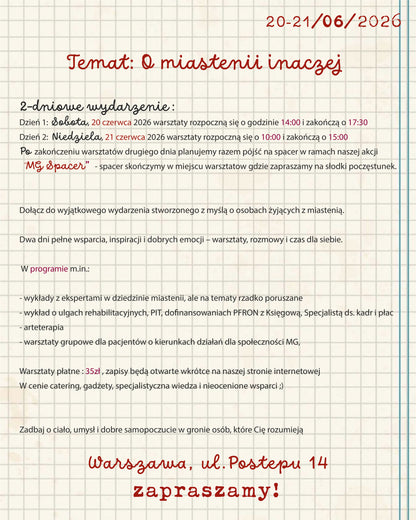 20-21/06/2026
Temat: O miastenii inaczej
2-dniowe wydarzenie:
Dzień 1: Sobota, 20 czerwca 2026 warsztaty rozpoczną się o godzinie 14:00 i zakończą o 17:30
Dzień 2: Niedziela, 21 czerwca 2026 warsztaty rozpoczną się o 10:00 i zakończą o 15:00
Po zakończeniu warsztatów drugiego dnia planujemy razem pójść na spacer w ramach naszej akcji
"MG Spacer" - spacer skończymy w miejscu warsztatow gdzie zapraszamy na słodki poczęstunek.
Dołącz do wyjątkowego wydarzenia stworzonego z myślą o osobach żyjących z miastenią.
Dwa dni pełne wsparcia, inspiracji i dobrych emocji – warsztaty, rozmowy i czas dla siebie.
W programie m.in.:
- wykłady z ekspertami w dziedzinie miastenii, ale na tematy rzadko poruszane
- wykład o ulgach rehabilitacyjnych, PIT, dofinansowaniach PFRON z Księgową, Specjalistą ds. kadr i płac
- arteterapia
- warsztaty grupowe dla pacjentów o kierunkach działań dla społeczności MG,
Warsztaty płatne : 35zł , zapisy będą otwarte wkrótce na naszej stronie internetowej
W cenie catering, gadżety, specjalistyczna wiedza i nieocenione wsparci ;)
Zadbaj o ciało, umysł i dobre samopoczucie w gronie osób, które Cię rozumieją
Warszawa, ul.Postępu 14
zapraszamy!